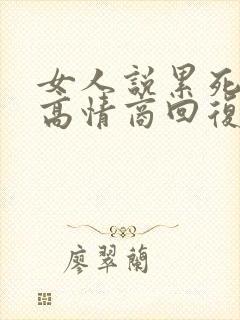 女人說累死
高情商回復
廖翠蘭